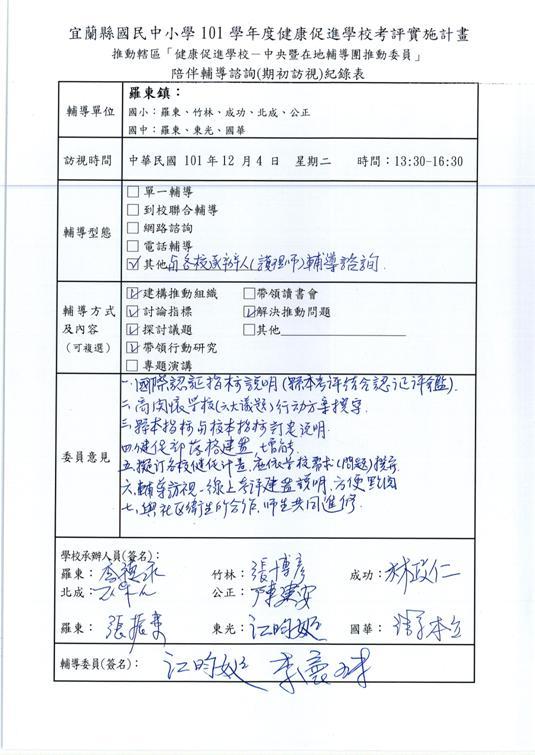 宜蘭縣國民中小學 101 學年度健康促進學校考評實施計畫
推動轄區「健康促進學校－中央暨在地輔導團推動委員」
陪伴輔導諮詢(期初訪視)紀錄表
輔導單位
羅東鎮：
國小：羅東、竹林、成功、北成、公正
國中：羅東、東光、國華
訪視時間
中華民國 101 年 12 月 4 日 星期二 時間：13:30-16:30
輔導型態
□單一輔導
□到校聯合輔導
□網路諮詢
□電話輔導
☑其他 與各校承辦人(護理師)輔導諮詢
輔導方式
及內容
(可複選)
☑建構推動組織 □帶領讀書會
☑討論指標 ☑解決推動問題
☑探討議題 □其他
☑帶領行動研究
□專題演講
委員意見
一、國際認証指標說明(縣本考評結合認証評鑑).
二、高關懷學校(六大議題)行動方案撰寫
三、縣本指標與校本指標訂定說明.
四、健促部落格建置 增能
五、擬訂各校健促計畫, 應依學校需求(問題)撰寫
六、輔導訪視-線上考評建置說明, 方便點閱
七、與社區衛生所合作, 師生共同進修.
學校承辦人員(簽名)：
羅東： 竹林：張博彥 成功：林政仁
北成： 公正：
羅東：張振東 東光：江昀 國華：
輔導委員(簽名)： 江昀